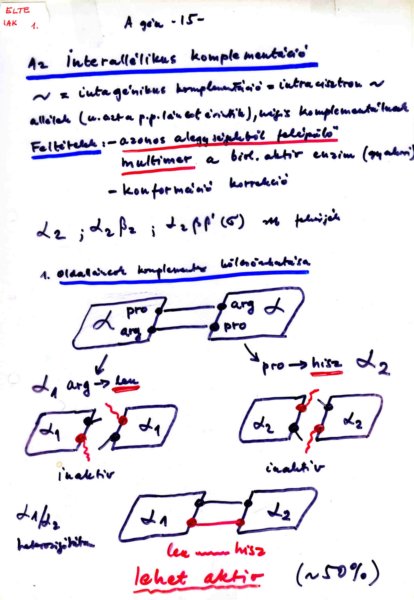 ELTE
IAK 1.
A gén -15-
Az interallélikus komplementáció
~ = intragénikus komplementáció = intracisztron ~
allélek (u.azt a p.p. láncot érintik), mégis komplementálnak
Feltételek: - azonos alegységekből felépülő
multimer a biol. aktív enzim (gyakori)
- konformáció korrekció
α2 ; α2β2 ; α2ββ'(σ) stb fehérjék
1. Oldalláncok komplementer kölcsönhatása
α pro arg α
arg pro
α1 arg → leu
pro → hisz α2
α1 α1
α2 α2
inaktív
inaktív
α1/α2
heterozigótába
α1 α2
leu hisz
lehet aktív (~50%)